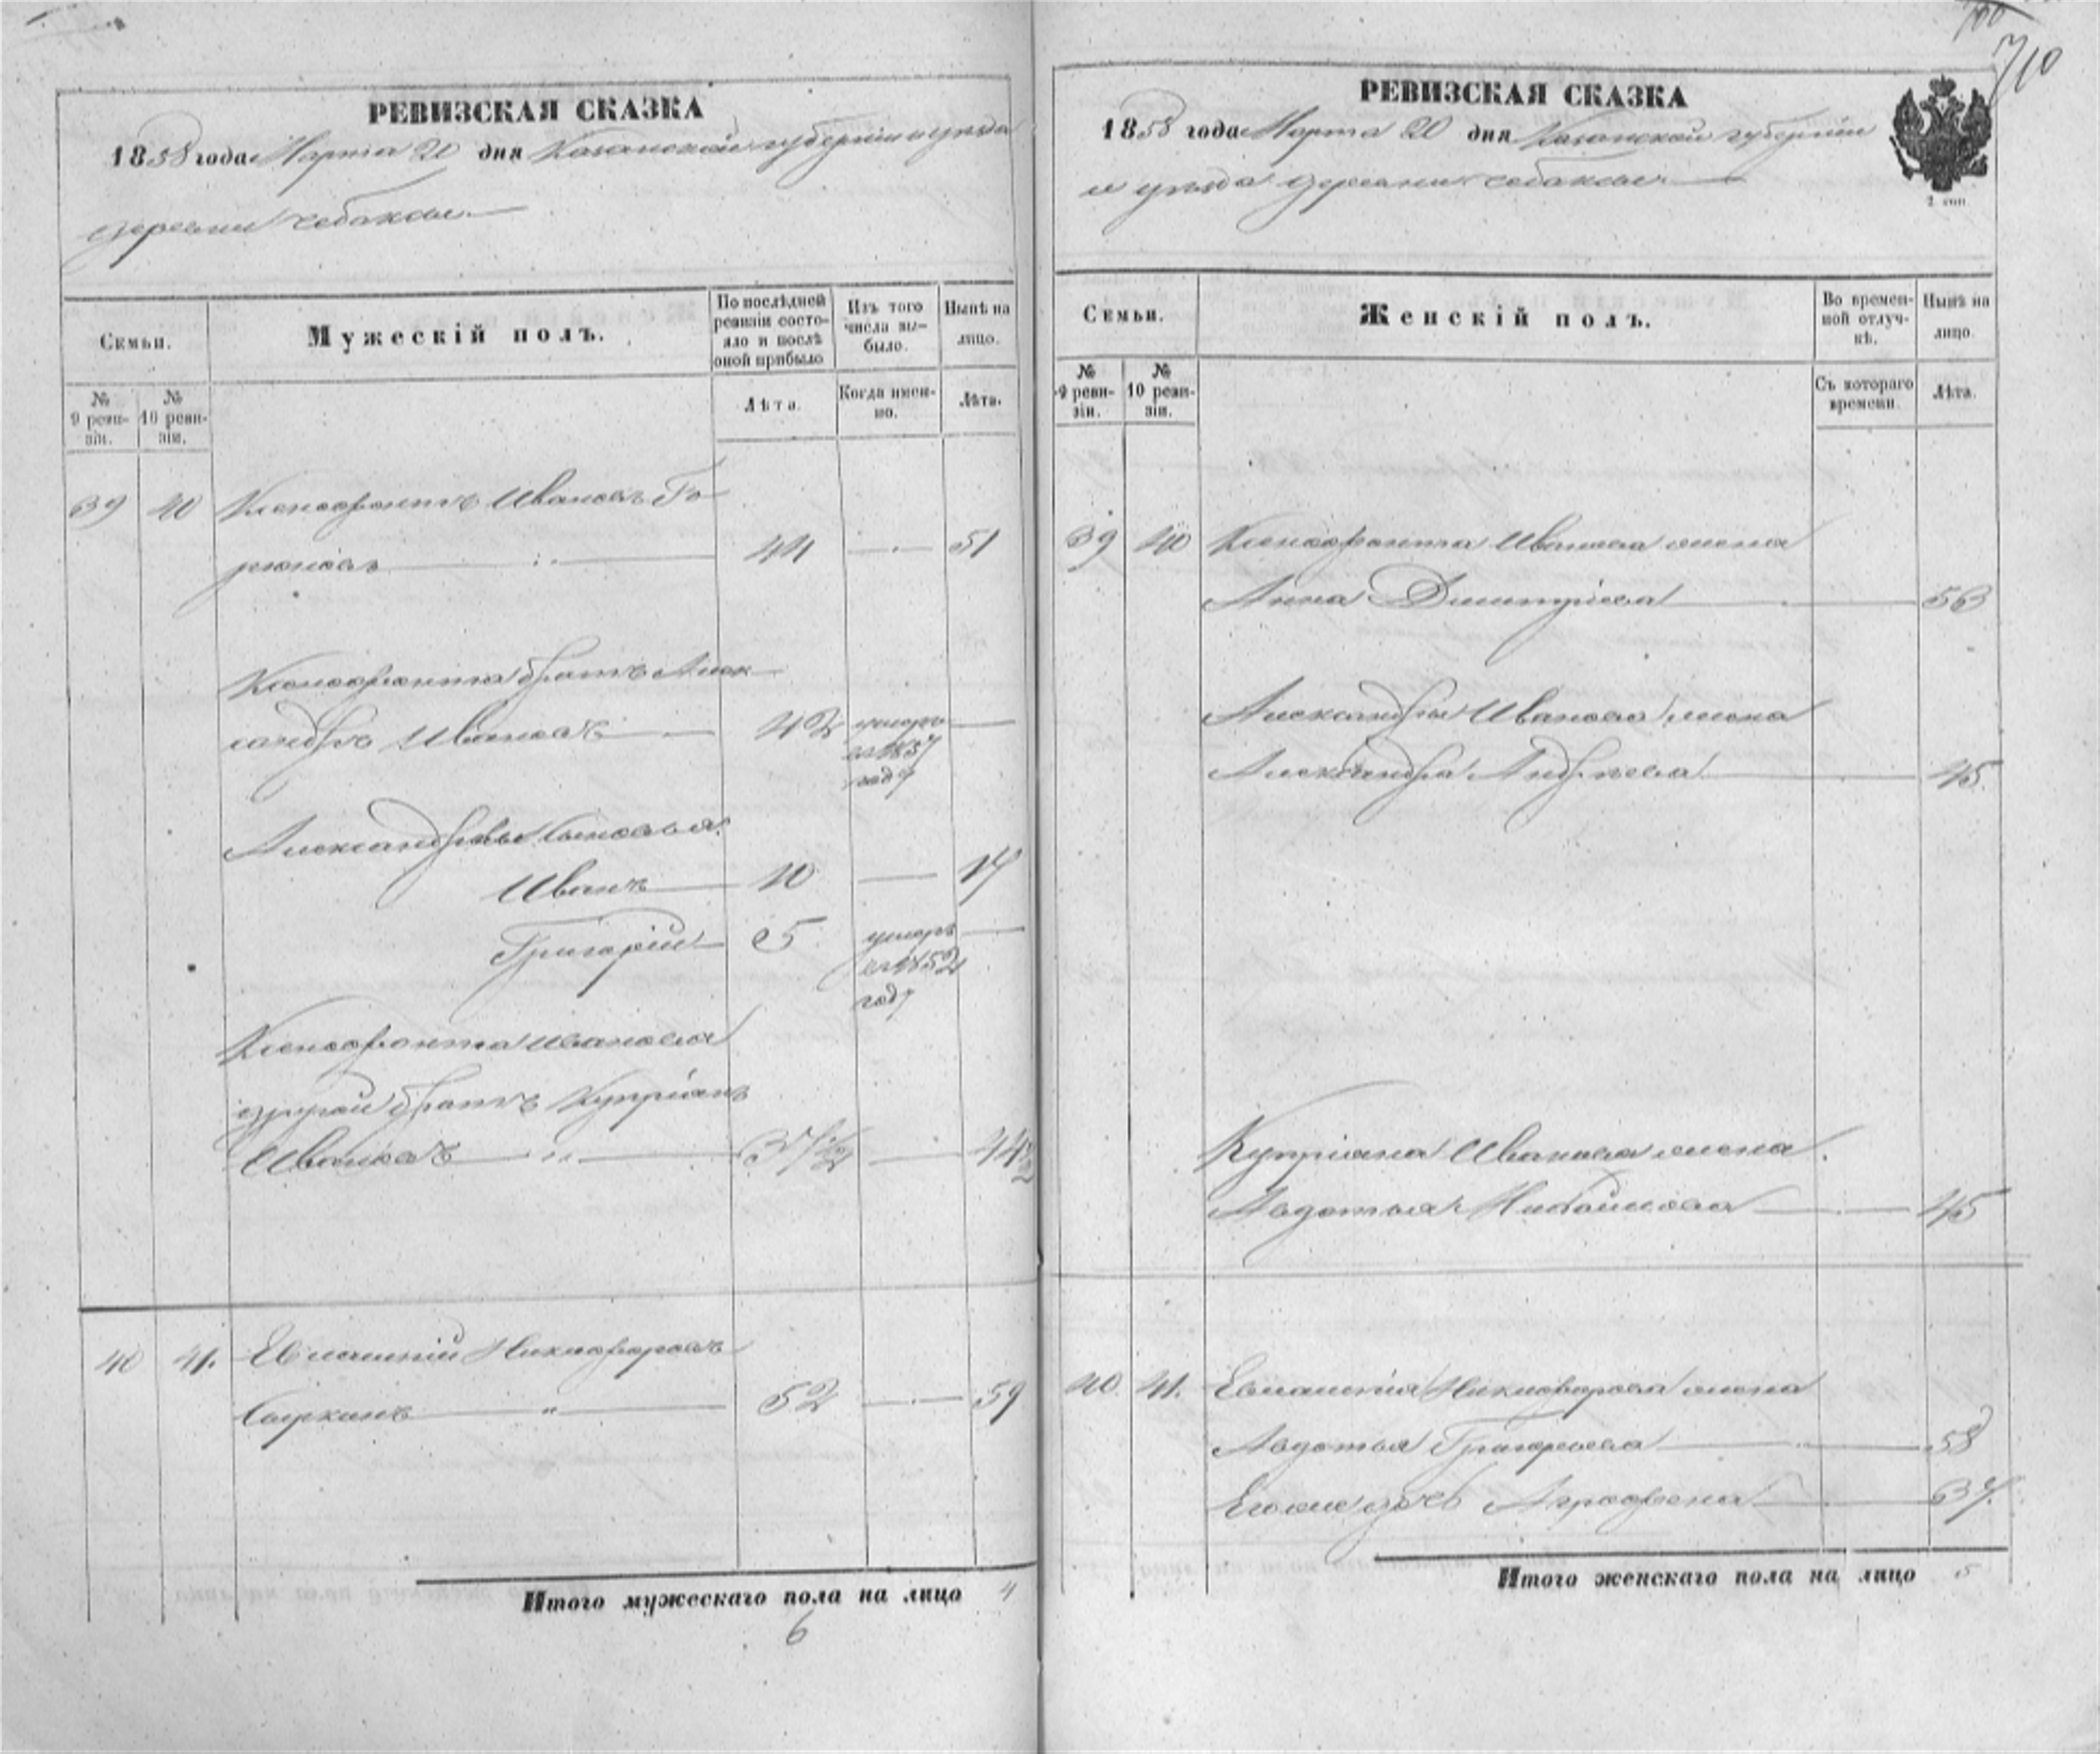 700
710
РЕВИЗСКАЯ СКАЗКА
1858 года Марта 20 дня Казанской губерніи и уѣзда
деревни Чебаксы
Семьи.
Мужескій полъ.
По послѣдней ревизіи состояло и послѣ оной прибыло
Изъ того числа выбыло.
Нынѣ на лицо.
№ 9 ревизіи.
№ 10 ревизіи.
Лѣта.
Когда именно.
Лѣта.
39 40 Ксенофонтъ Ивановъ Го-
рюновъ 44 51
Ксенофонта братъ Алек-
сандръ Ивановъ 42 умеръ
въ 1857
году
Александровы сыновья
Иванъ 10 17
Григорій 5 умеръ
въ 1852
году
Ксенофонта Иванова
другой братъ Купріянъ
Ивановъ 37½ 44½
40 41. Евлампій Никифоровъ
Сыркинъ 52 59
Итого мужескаго пола на лицо 4
6
РЕВИЗСКАЯ СКАЗКА
1858 года Марта 20 дня Казанской губерніи
и уѣзда деревни Чебаксы
Семьи.
Женскій полъ.
Во временной отлучкѣ.
Нынѣ на лицо.
№ 9 ревизіи.
№ 10 ревизіи.
Съ котораго времени.
Лѣта.
39 40 Ксенофонта Иванова жена
Анна Димитріева 53
Александра Иванова жена
Александра Андреева 45.
Купріяна Иванова жена
Авдотья 45
40. 41. Евлампія Никифорова жена
Авдотья Григорьева 58
Его же дочь Аграфена 37.
Итого женскаго пола на лицо 5